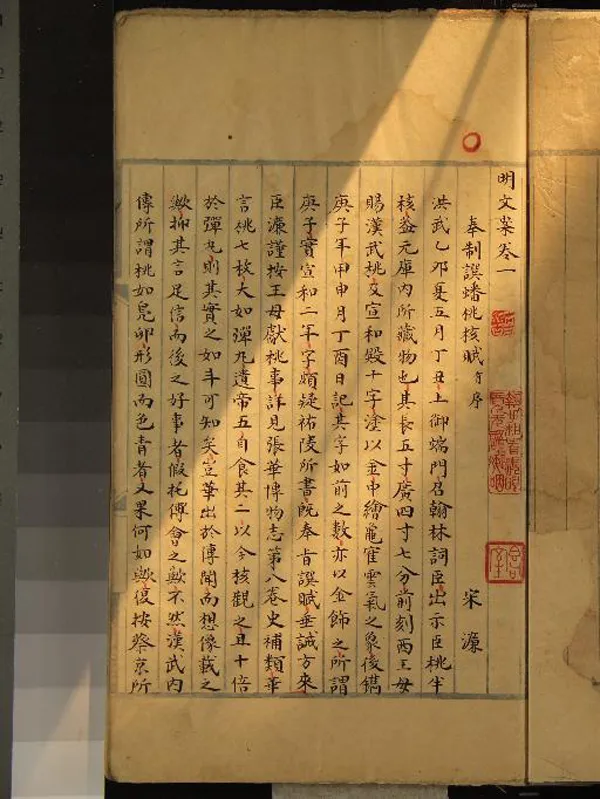 明文案卷一
奉制譔蟠桃核賦有序
宋濂
洪武乙卯夏五月丁丑上御端門召翰林詞臣出示臣桃半
核盖元庫内所藏物也其長五寸廣四寸七分前刻西王母
賜漢武桃及宣和殿十字塗以金中繪龜寉雲氣之象後鐫
庚子年甲申月丁酉日記其字如前之數亦以金飾之所謂
庚子實宣和二年字頗疑祐陵所書既奉旨譔賦垂誡方來
臣濂謹按王母獻桃事詳見張華博物志第八卷史補類華
言桃七枚大如彈丸遺帝五自食其二以今核觀之且十倍
於彈丸則其實之如斗可知矣豈華出於傳聞而想像載之
歟抑其言足信而後之好事者假托傅會之歟不然漢武内
傳所謂桃如鳧卵形圓而色青者又果何如歟復按蔡京所